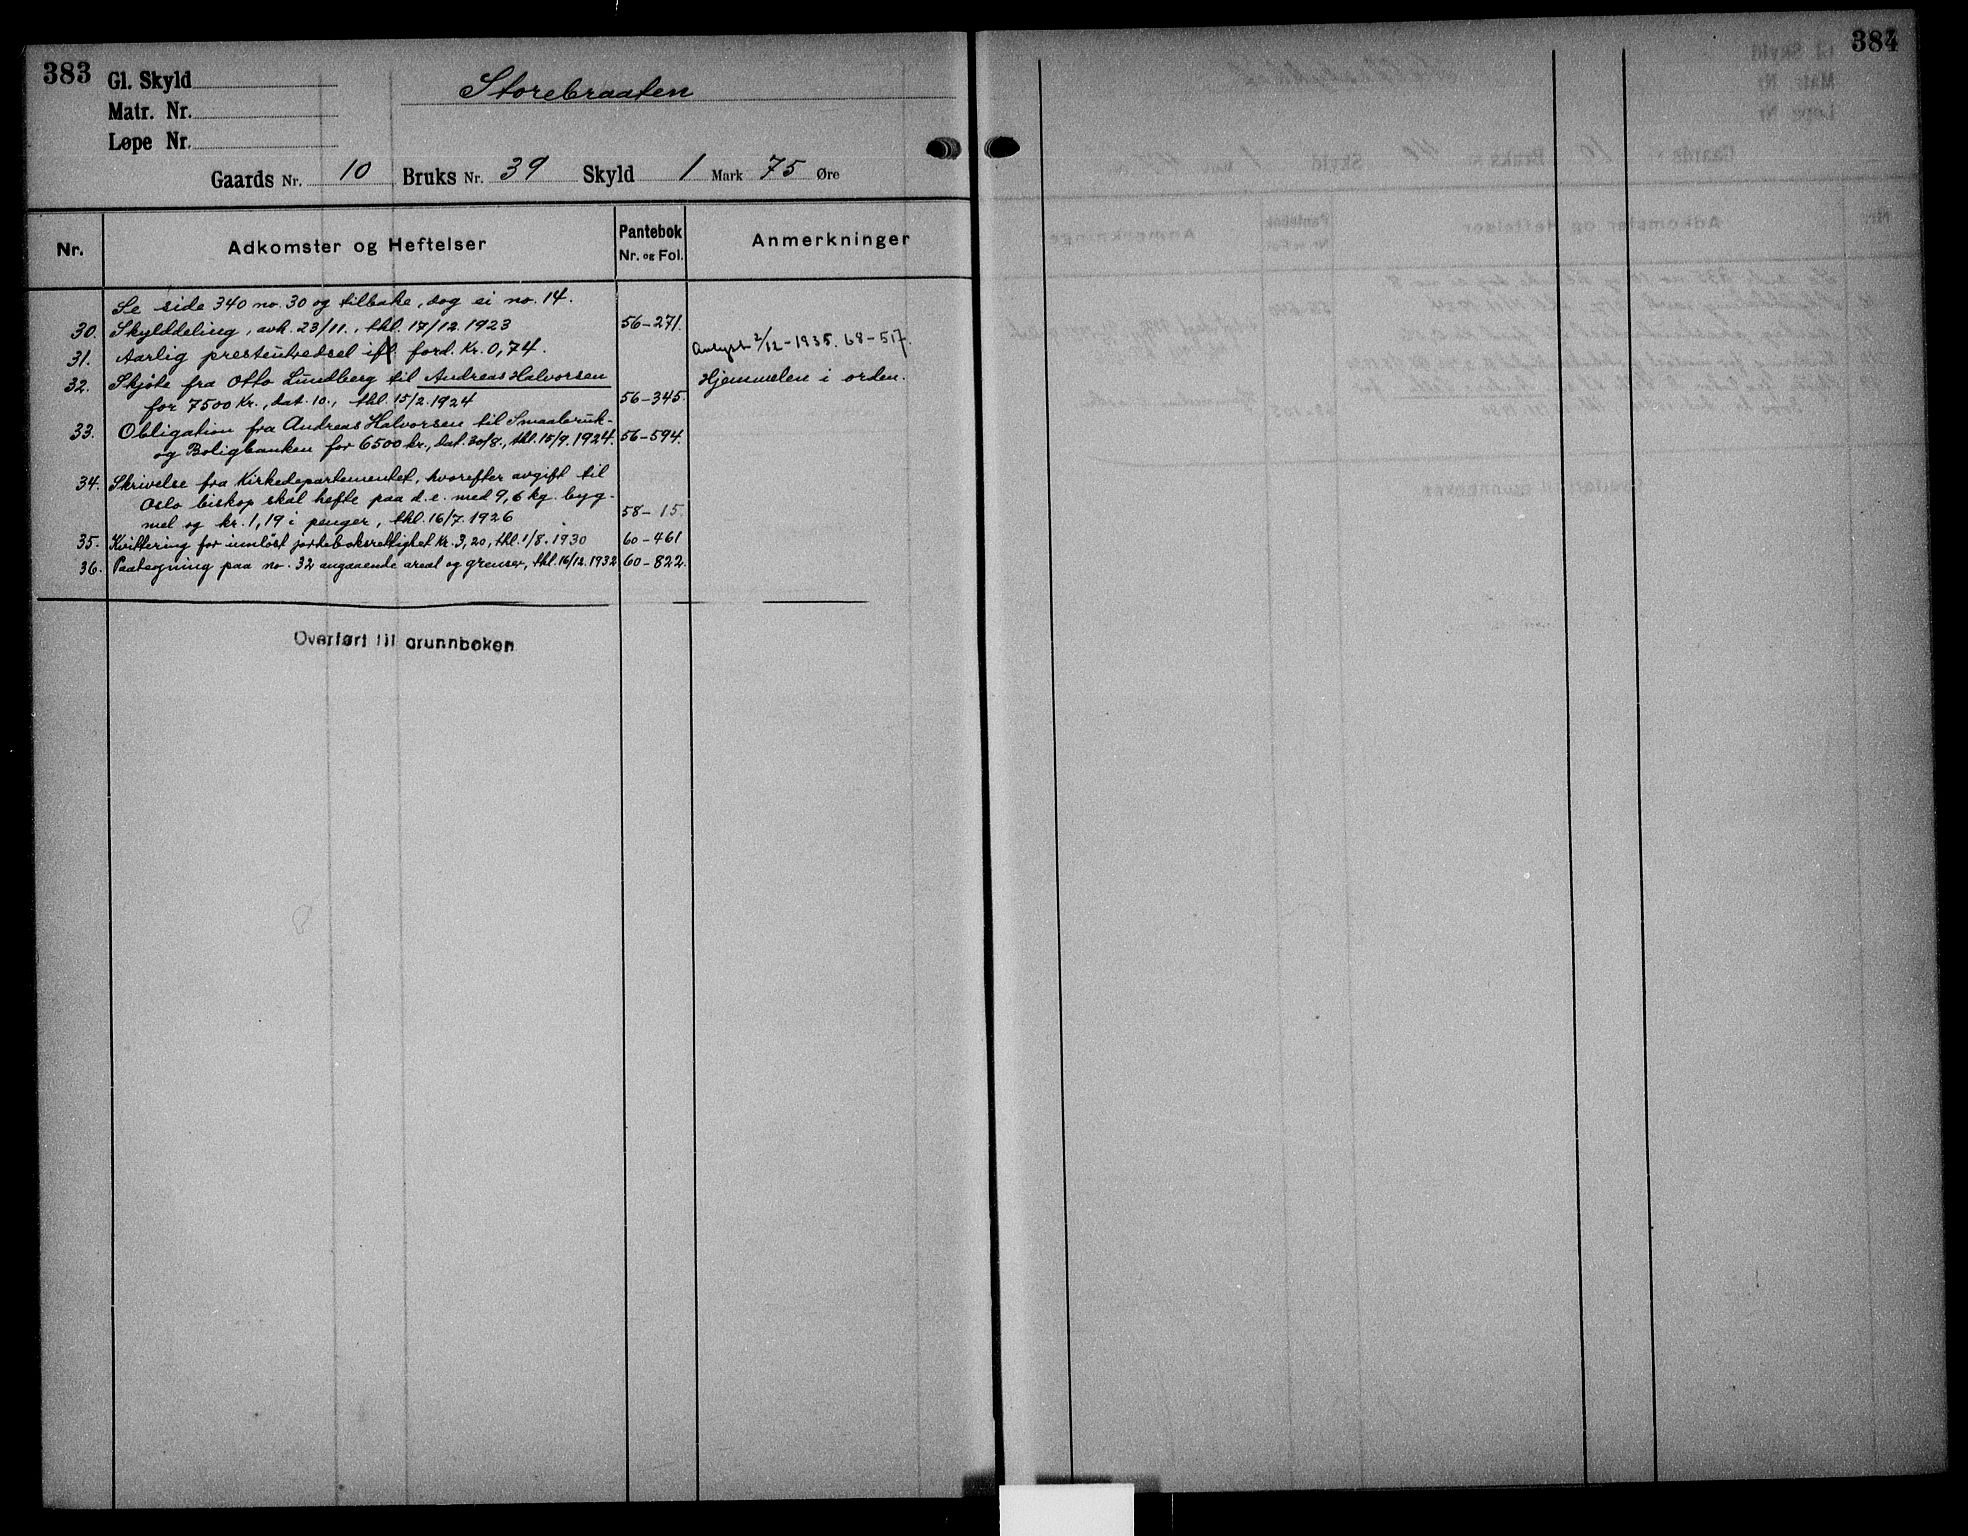 383
Gl. Skyld
Matr. Nr.
Løpe Nr.
Storebraaten
Gaards Nr. 10 Bruks Nr. 39 Skyld 1 Mark 75 Øre
Nr. Adkomster og Heftelser Pantebok Nr. og Fol. Anmerkninger
Se side 340 no. 30 og tilbake, dog ei no. 14.
30. Skylddeling, avh. 23/11., thl. 17/12.1923 56-271.
31. Aarlig presteutredsel ifl. ford. Kr. 0,74. Avlyst 2/12-1935. 68-517.
32. Skjøte fra Otto Lundberg til Andreas Halvorsen Hjemmelen i orden.
for 7500 Kr., dat. 10., thl. 15/2.1924 56-345.
33. Obligation fra Andreas Halvorsen til Smaabruk-
og Boligbanken for 6500 kr., dat. 30/8., thl. 15/9.1924. 56-594.
34. Skrivelse fra Kirkedepartementet, hvorefter avgift til
Oslo biskop skal hefte paa d.e. med 9,6 kg. byg-
mel og kr. 1,19 i penger, thl. 16/7.1926 58-15.
35. Kvittering for innløst jordeboksrettighet Kr. 3,20, thl. 1/8.1930 60-461
36. Paategning paa no. 32 angaaende areal og grenser, thl. 16/12.1932 60-822.
Overført til grunnboken